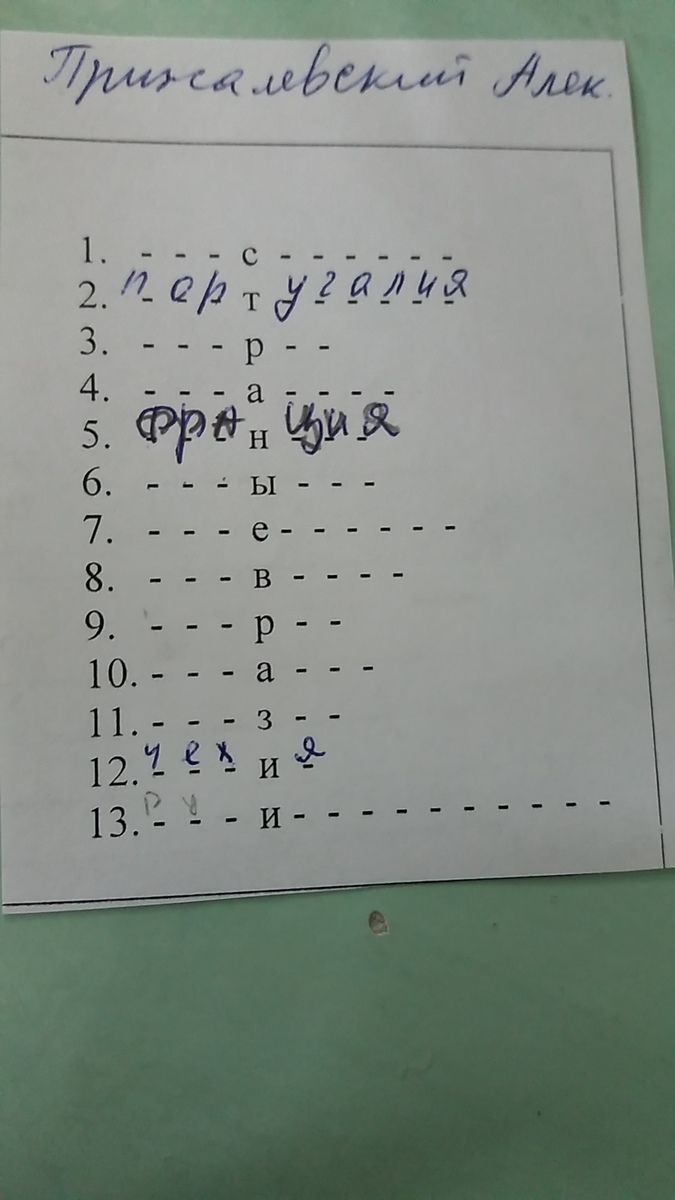 Прижалевский Алек.
1. - - - с - - - - - -
2. п о р т у г а л и я
3. - - - р - -
4. - - - а - - - -
5. ф р а н ц и я
6. - - - ы - - -
7. - - - е - - - - - -
8. - - - в - - - -
9. - - - р - -
10. - - - а - - -
11. - - - з - -
12. ч е х и я
13. р у - и - - - - - - - - - -